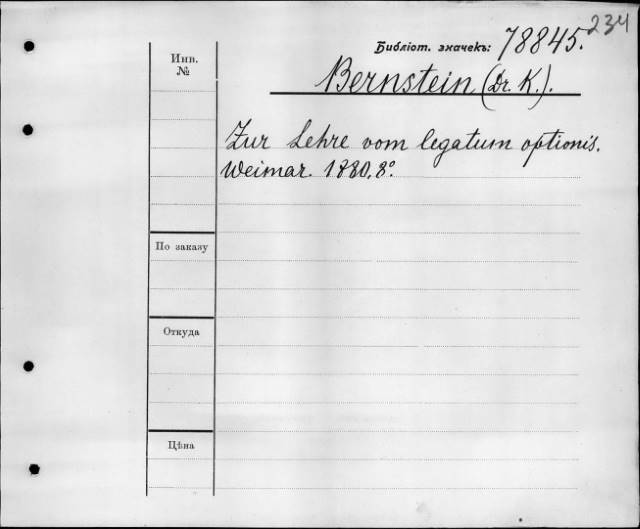 234
Библіот. значекъ: 78845.
Инв.
№
Bernstein (Dr. K.).
Zur Lehre vom legatum optionis.
Weimar. 1880. 8°.
По заказу
Откуда
Цѣна